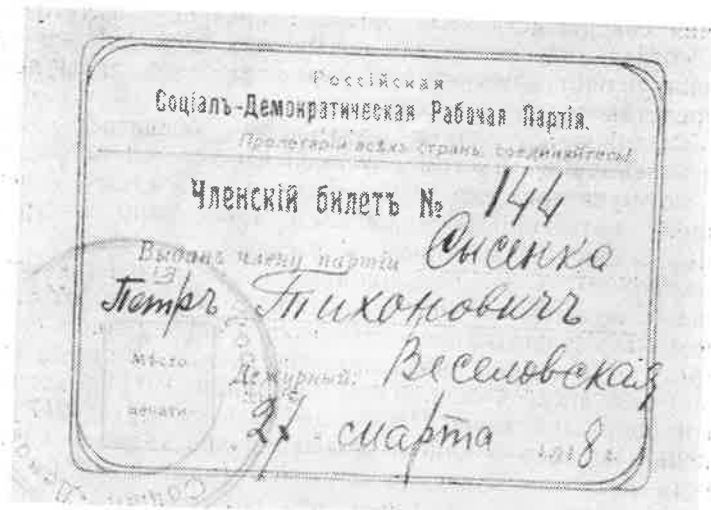 Россійская
Соціалъ-Демократическая Рабочая Партія.
Пролетаріи всѣхъ странъ, соединяйтесь!
Членскій билетъ № 144
Выданъ члену партіи Сысенко
Петръ Тихоновичъ
Мѣсто
печати
Дежурный: Веселовская
27 марта 1918 г.